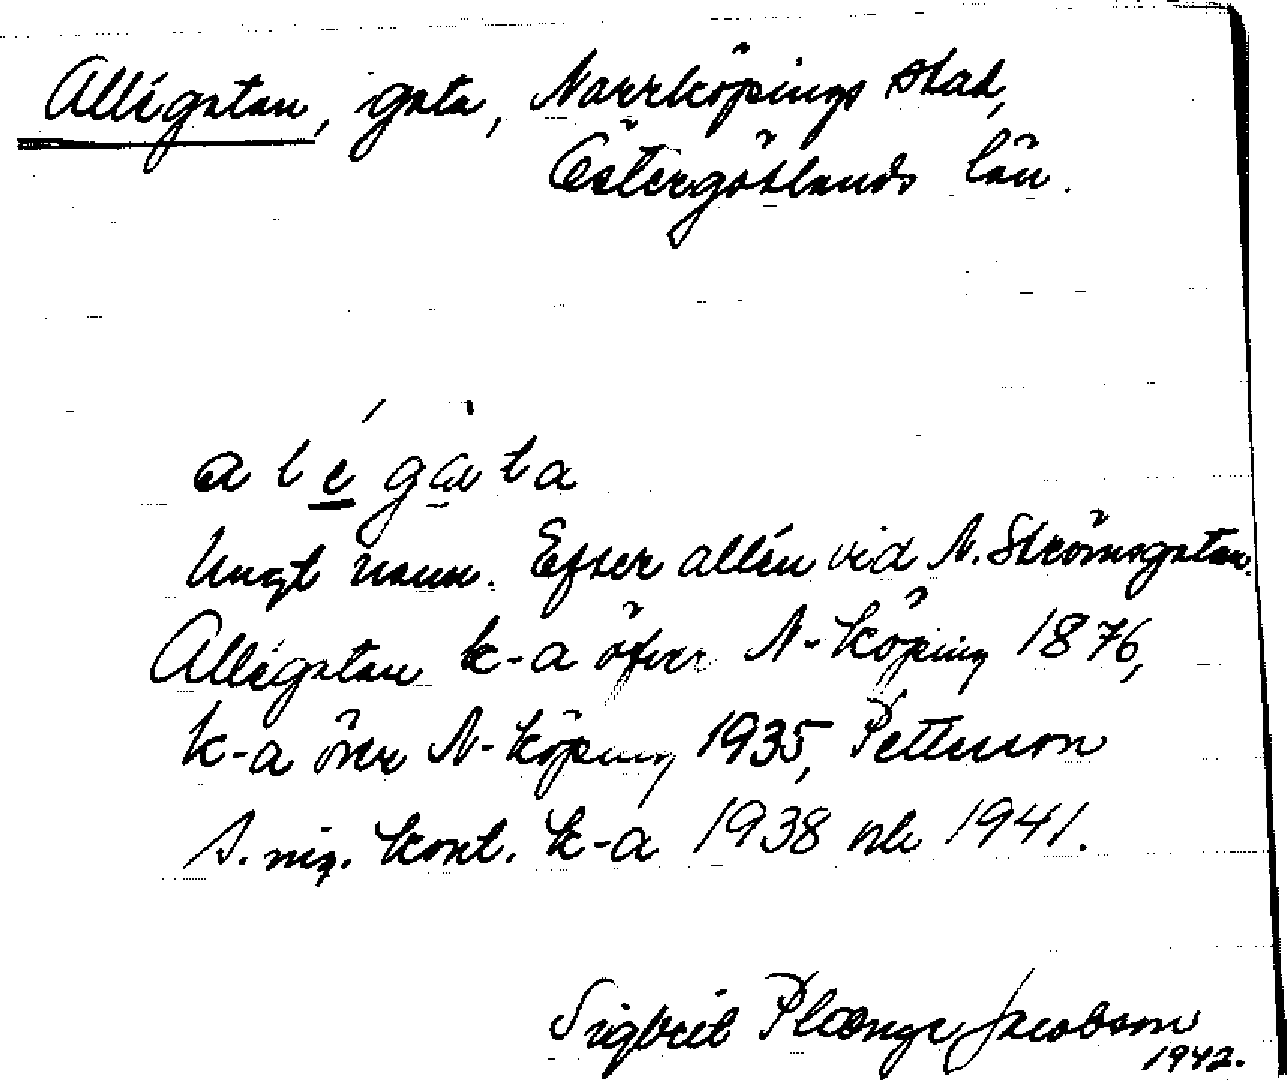 Allégatan, gata, Norrköpings stad,
Östergötlands län.
alégata
Ungt namn. Efter allén vid N. Strömsgatan.
Allégatan k-a öfver N-köping 1876,
k-a över N-köping 1935, Petterson
k-a 1938 och 1941.
Sigbrit Plænge Jacobson
1942.